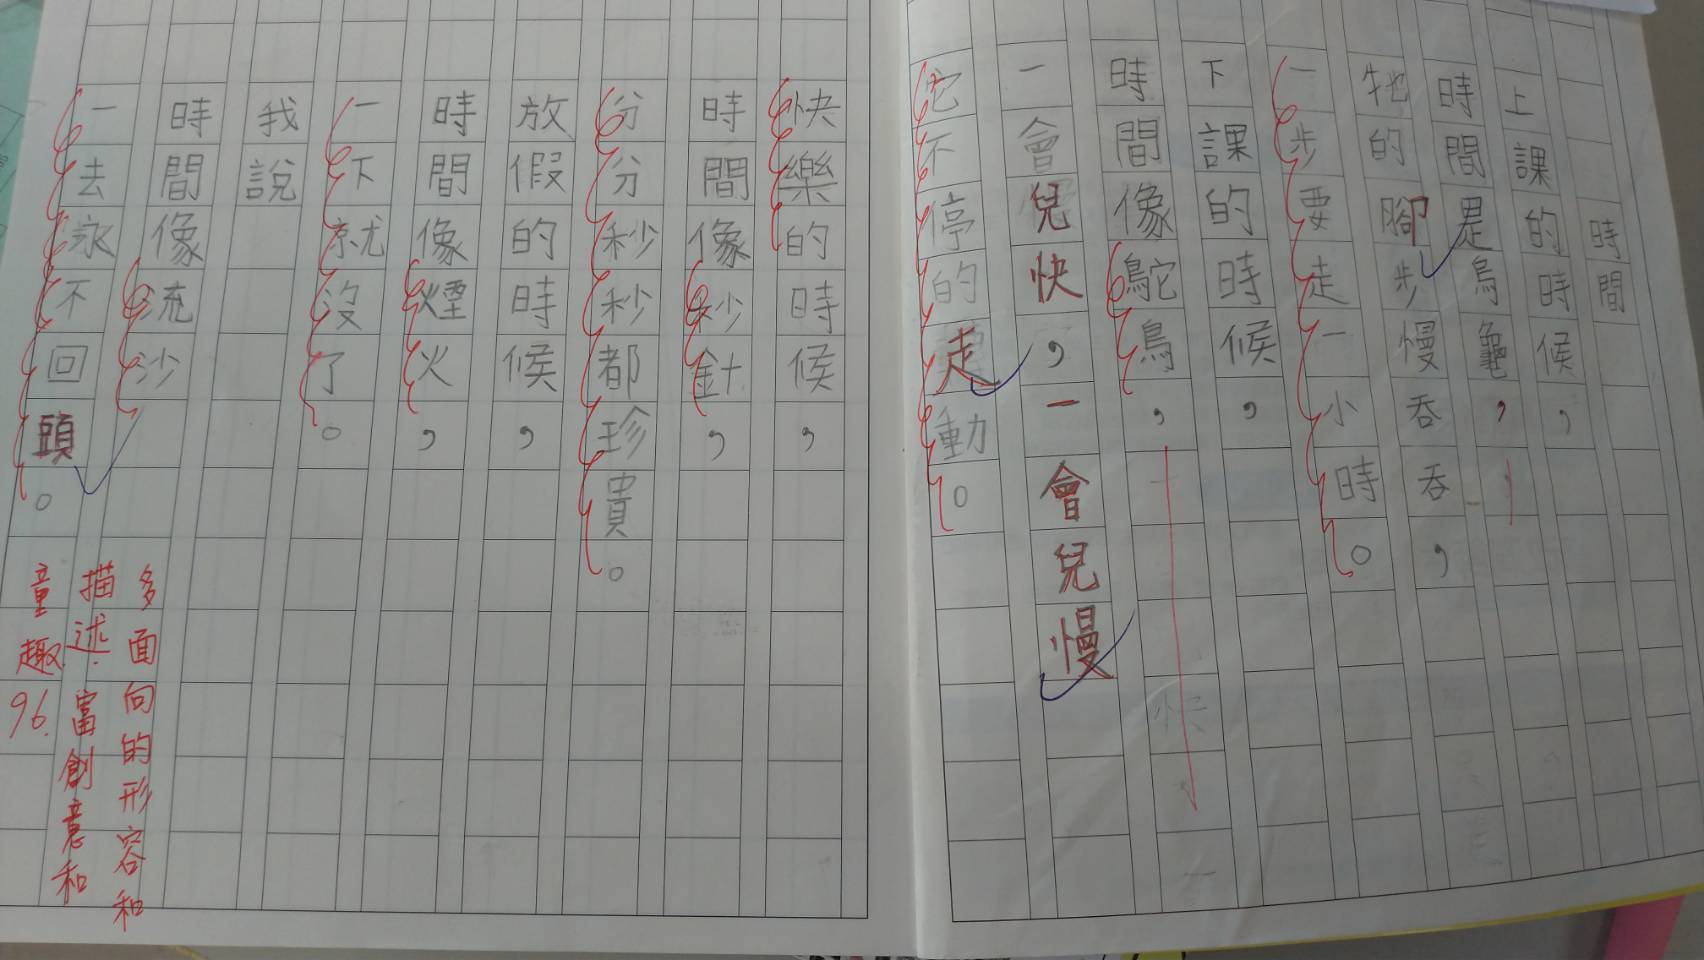 時間
上課的時候，
時間是烏龜，
牠的腳步慢吞吞，
一步要走一小時。
下課的時候，
時間像鴕鳥，
一會兒快，一會兒慢
它不停的走動。
快樂的時候，
時間像秒針，
分分秒秒都珍貴。
放假的時候，
時間像煙火，
一下就沒了。
我說
時間像流沙
一去永不回頭。
多面向的形容和
描述.富創意和
童趣.96.